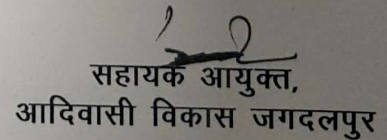 सहायक आयुक्त,
आदिवासी विकास जगदलपुर